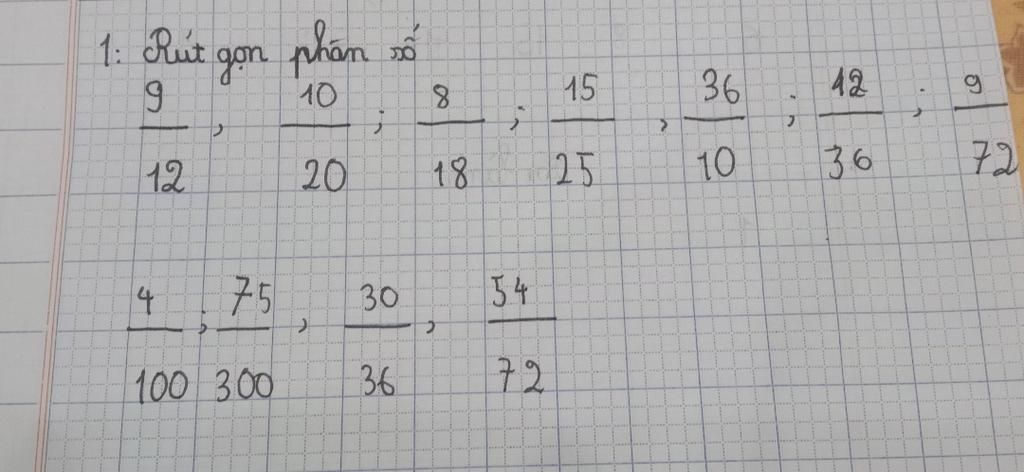 1: Rút gọn phân số
9/12 , 10/20 ; 8/18 ; 15/25 , 36/10 ; 12/36 ; 9/72
4/100 ; 75/300 , 30/36 , 54/72